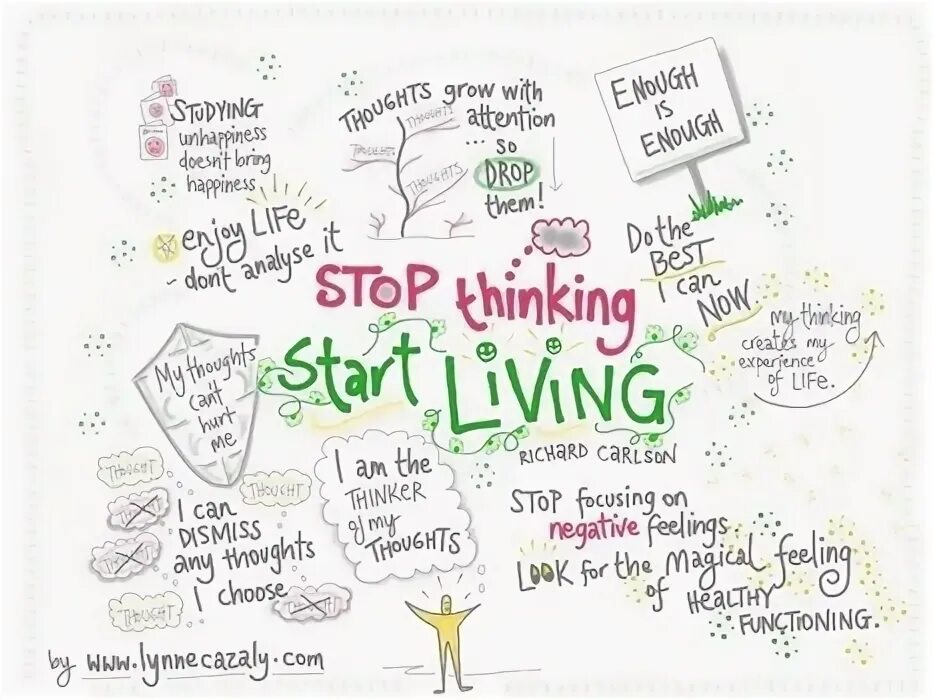 STUDYING
unhappiness
doesn't bring
happiness
enjoy LIFE
- don't analyse it
THOUGHTS grow with
attention
... so
DROP
them!
THOUGHTS
THOUGHT
THOUGHTS
ENOUGH
IS
ENOUGH
Do the
BEST
I can
NOW
STOP thinking
Start LiViNG
RICHARD CARLSON
my thinking
creates my
experience
of LIFE.
My thoughts
can't
hurt
me
THOUGHT
THOUGHT
I can
DISMISS
any thoughts
I choose
THOUGHT
I am the
THINKER
of my
THOUGHTS
STOP focusing on
negative feelings
LOOK for the Magical feeling
of HEALTHY
FUNCTIONING.
by www.lynnecazaly.com